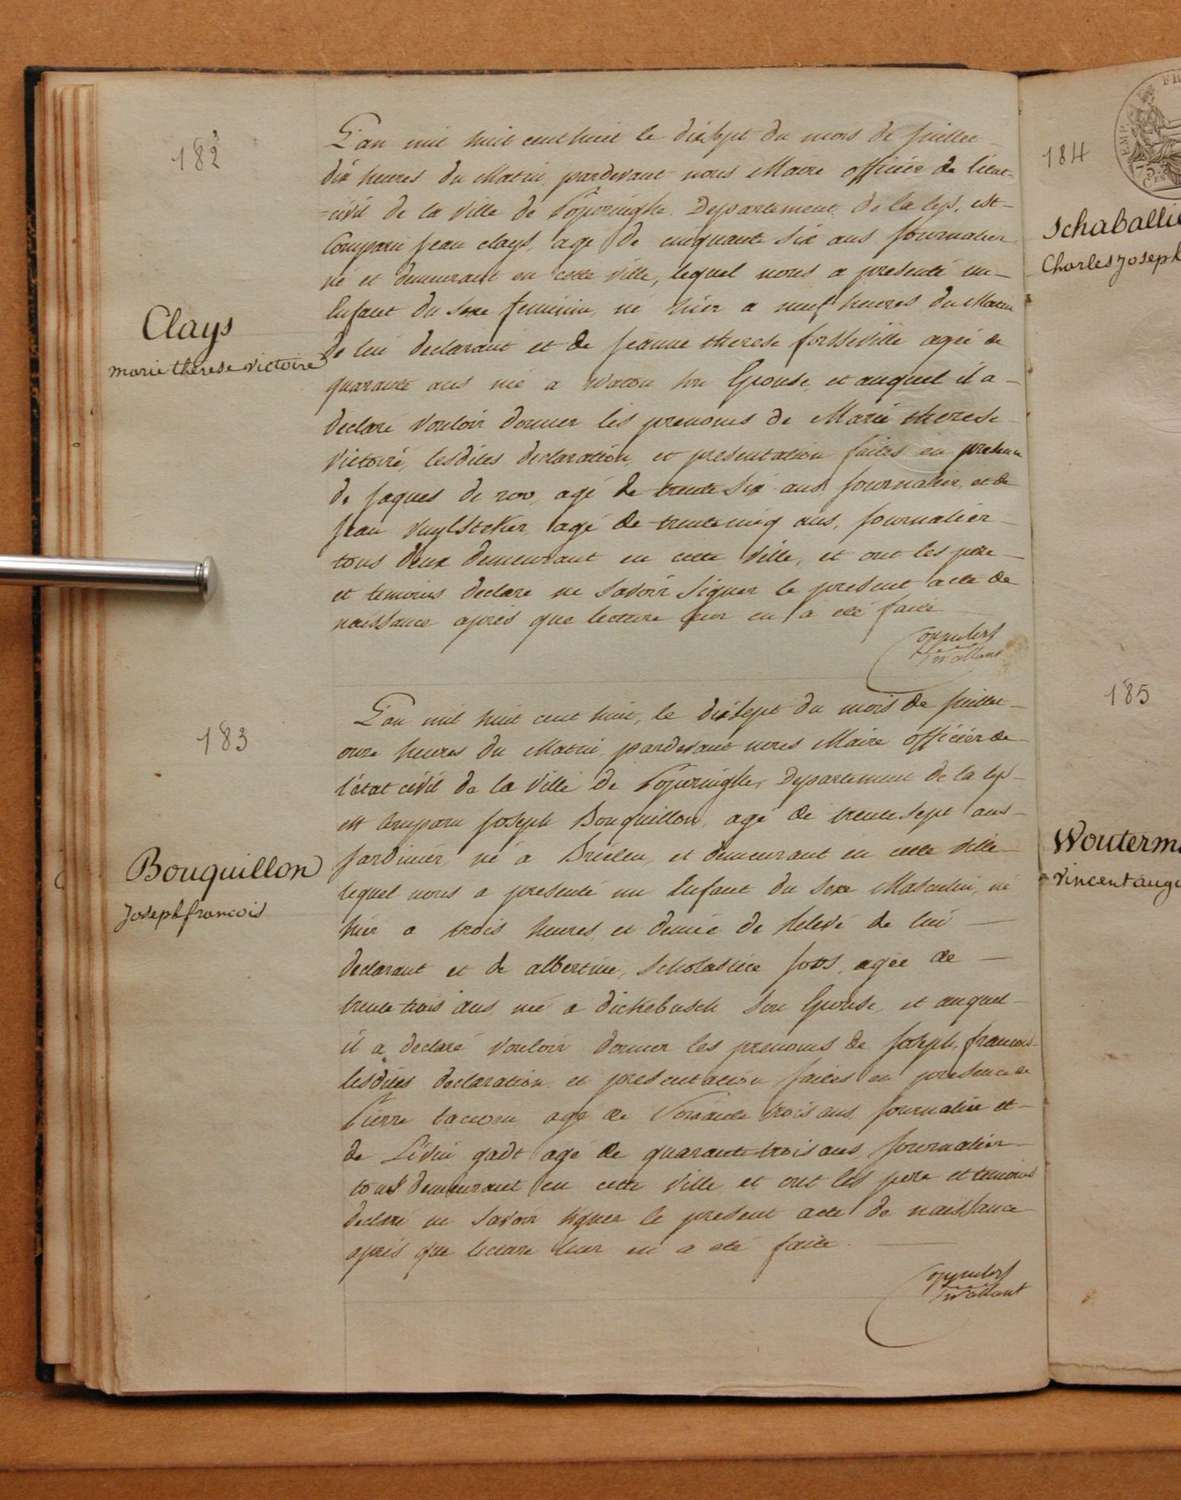 182
Clays
marie therese victoire
L'an mil huit cent huit le dixsept du mois de juillet
dix heures du Matin pardevant nous Maire officier de l'état
civil de la ville de Poperinghe Departement de la lys, est
Comparu jean clays, agé de cinquante six ans journalier
né et demeurant en cette ville, lequel nous a presenté un
Enfant du sexe feminin, né hier a neuf heures du Matin
de lui declarant et de jeanne therese agée de
quarante ans née a watou son Epouse et auquel il a
declaré vouloir donner les prenoms de Marie therese
victoire, lesdites declaration et presentation faites en presence
de jaques de roo agé de trente six ans journalier, et de
jean vuylsteker agé de trentecinq ans, journalier
tous deux demeurant en cette ville, et ont les père
et temoins declaré ne savoir signer le present acte de
naissance après que lecture leur en a été faite
183
Bouquillon
Joseph francois
L'an mil huit cent huit, le dixsept du mois de juillet
onze heures du Matin pardevant nous Maire officier de
l'état civil de la ville de Poperinghe, Departement de la lys
est Comparu joseph Bouquillon agé de trente sept ans
jardinier né a Brielen et demeurant en cette ville
lequel nous a presenté un Enfant du sexe Masculin, né
hier a trois heures et demie de Relevé de lui
declarant et de albertine, scholastica agée de
trente trois ans née a dickebusch son Epouse, et auquel
il a declaré vouloir donner les prenoms de joseph, francois
lesdites declaration et presentation faites en presence de
Pierre agé de trois ans journalier et
de Livin gadt agé de quarante trois ans journalier
tous demeurant en cette ville et ont les père et temoins
declaré ne savoir signer le present acte de naissance
après que lecture leur en a été faite
184
Schaballie
Charles Joseph
185
Wouterm
vincent augu